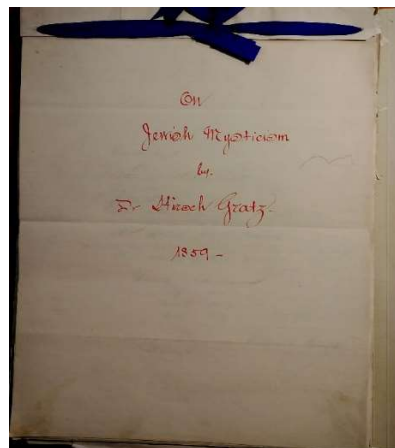 On
Jewish Mysticism
by.
Dr Hirsch Gratz.
1859 -